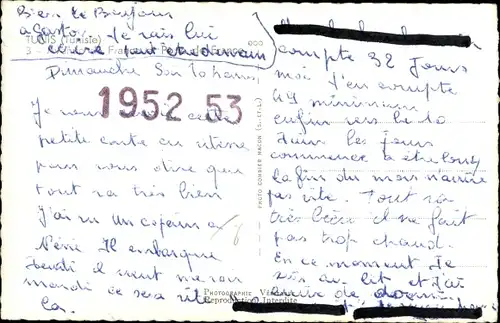 Bien le Bonjour
à Gaston. Je vais lui
TUNIS (Tunisie)
écrire peut être demain
3 -
Dimanche Soir
1952 53
Je vous cette
petite carte en vitesse
pour vous dire que
tout va très bien
J'ai vu un copain à
Néné Il embarque
Jeudi il vient me voir
mardi ce sera vite
là.
PHOTO COMBIER MACON (S.-et-L.)
PHOTOGRAPHIE
Reproduction Interdite
compte 32 Jours
moi J'en compte
49 minimum
enfin vers le 10
Juin les Jours
commence a être long
la fin du mois n'arrive
pas vite. Tout va
très bien il ne fait
pas trop chaud.
En ce moment Je
suis au lit et J'ai
envie de dormir